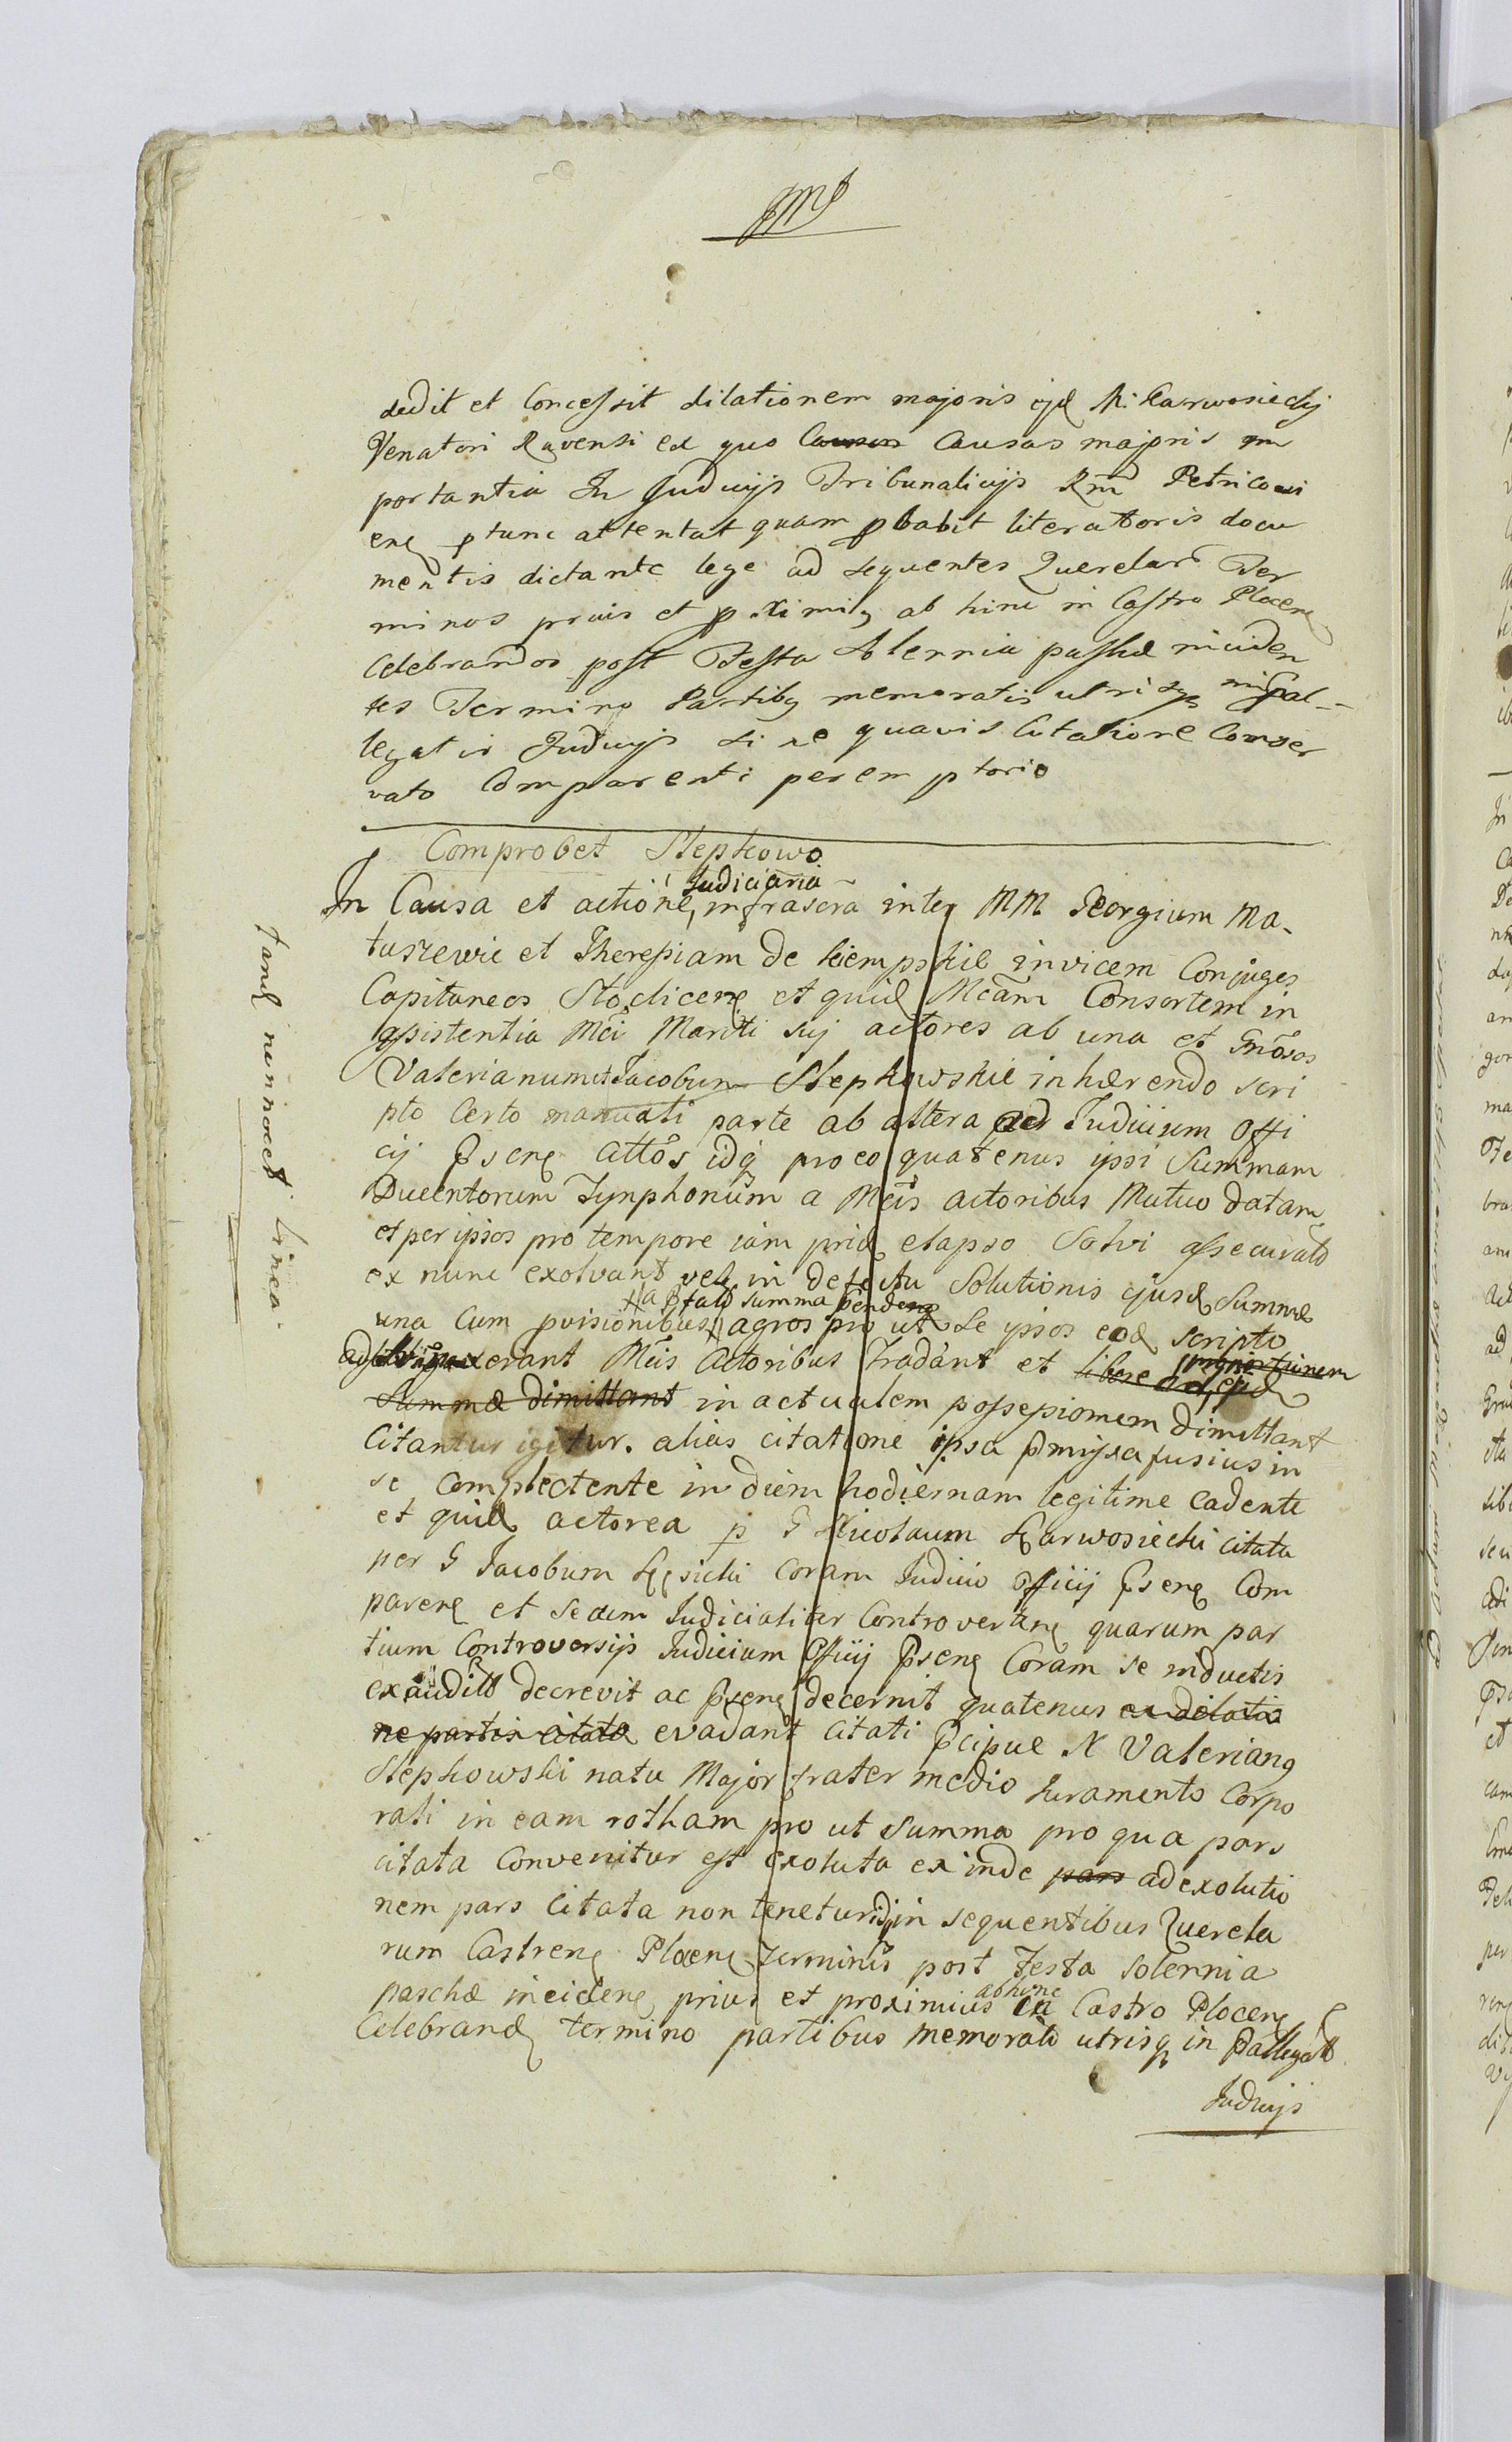 dedit et Concessit dilationem majoris ejd M: Karwosiecky
Venatori Ravensi ex quo Causas Causas majoris im
portantia In Judicijs Tribunalicijs Rni Petricovi
eng p tunc attentat quam pbabit literatoris docu
mentis dictante lege ad sequentes Querelar Ter
minos prius et p ximiq ab hinc in Castro Plocen
Celebrandos post Festa Solennia paschæ inciden
tes Termino Partibq memoratis utrisq in pal-
legatis Judicijs si ne quavis Citatione Conser
vato Comparenti peremptorio
Comprobet Stepkowo
Judiciaria
In Causa et actione, infrascra inter MM Georgium Ma-
tuszewic et Theressiam de Kiempskie invicem Conjuges
Capitaneos Stoclicen et quid Mcam Consortem in
assistentia Mci Mariti sui actores ab una et Gnosos
Valerianum et Jacobum Stepkowskie inhærendo scri
pto Certo manuali parte ab altera ad Judicium Offi
cij Psens Cittos idq pro eo quatenus ipsi Summam
Ducentorum Tynphonum a Mcis actoribus Mutuo datam
et per ipsos pro tempore iam prid elapso Solvi assecurato
ex nunc exolvant vel in defectu Solutionis ejusd Summæ
a pfato summa penden
una Cum pvisionibus agros pro ut Se ipsos eod scripto
adstrinxerant Mcis Actoribus Tradant et libere ad ejd
Summæ dimittant in actualem possessionem dimittant
Citantur igitur. alias citatione ipsa pmissa fusius in
se complectente in diem hodiernam legitime cadente
et quid actorea p G Nicolaum Karwosiecki citata
per G Jacobum Kęsicki Coram Judicio Officij Psens Com
paren et Secum Judicialiter Controverten quarum par
tium Controversijs Judicium Officij Psens Coram se inductis
exauditis decrevit ac Psens decernit quatenus ex dilatio
ne partis citatæ evadant Citati Pcipue N Valerianq
Stepkowski natu Major frater medio Juramento Corpo
rali in eam rotham pro ut Summa pro qua pars
citata Convenitur est exoluta ex inde pars ad exolutio
nem pars Citata non tenetur idq in sequentibus Querela
rum Castren Plocen Terminis post Festa Solennia
paschæ inciden prius et proximius ab hinc in Castro Plocen
Celebrand termino partibus memoratis utrisq in Pallegatis
Judicijs
Tand nunnocet linea.